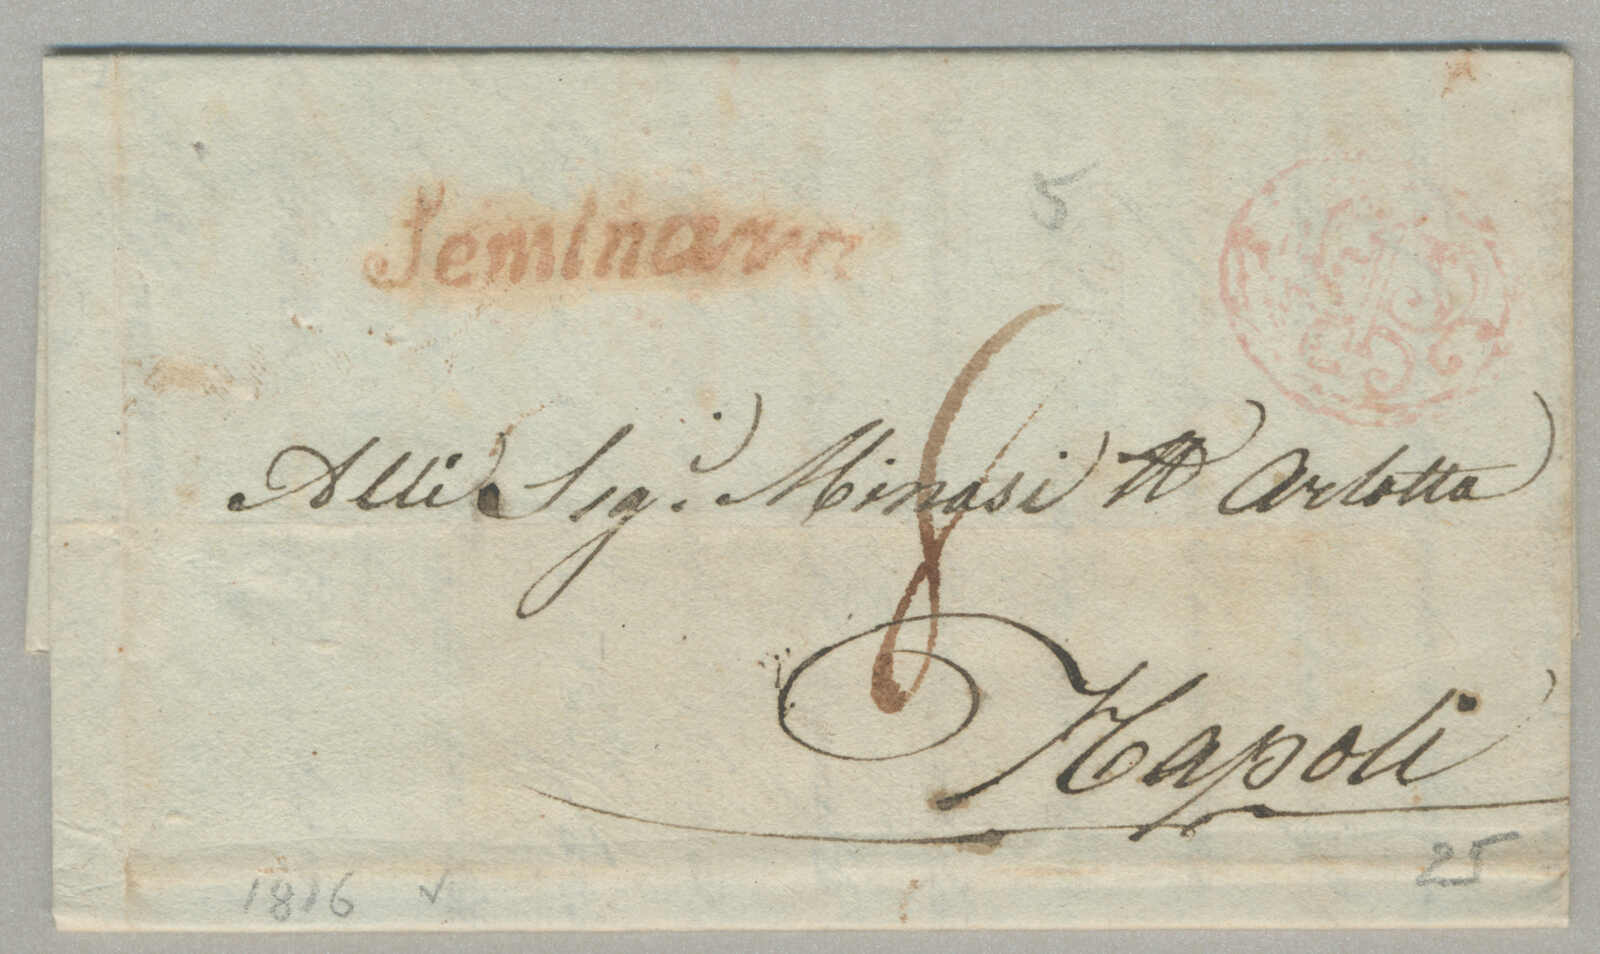 Seminara
5
8
Alli Sig.i Minasi ed Arlotta
Napoli
25
1816